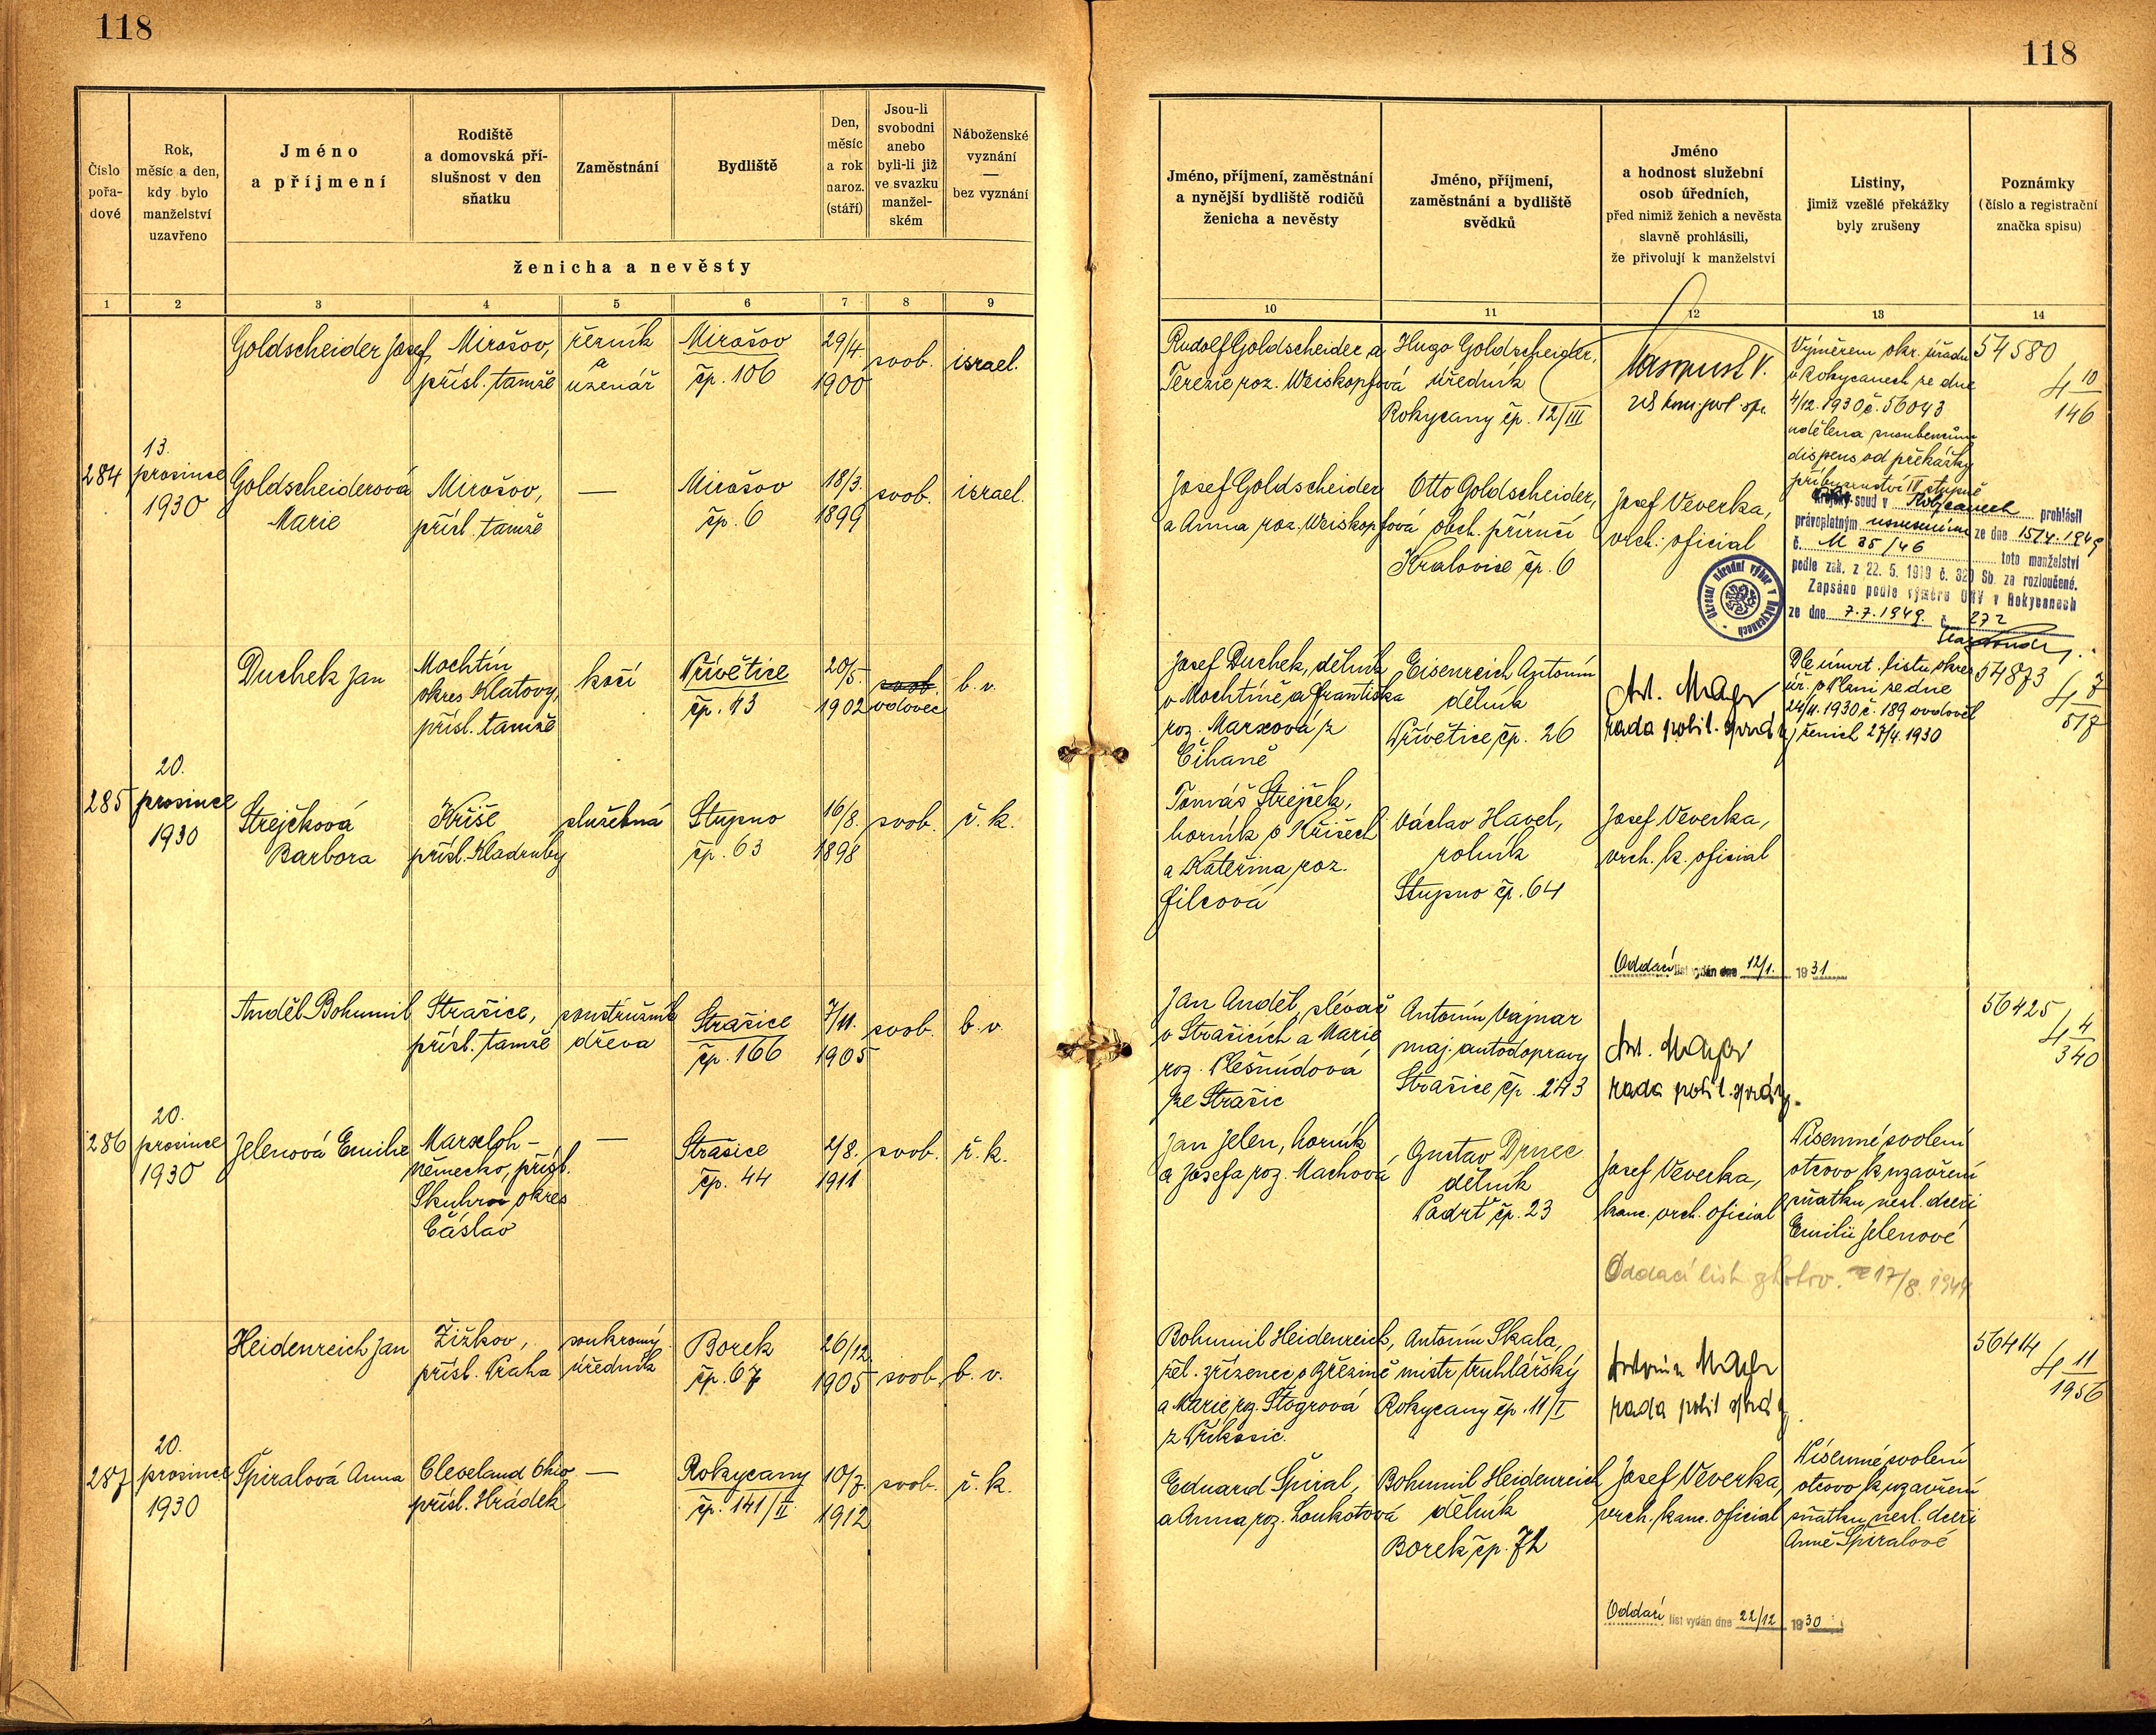 118
Číslo
pořa-
dové
Rok,
měsíc a den,
kdy bylo
manželství
uzavřeno
Jméno
a příjmení
Rodiště
a domovská pří-
slušnost v den
sňatku
Zaměstnání
Bydliště
Den,
měsíc
a rok
naroz.
(stáří)
Jsou-li
svobodni
anebo
byli-li již
ve svazku
manžel-
ském
Náboženské
vyznání
—
bez vyznání
ženicha a nevěsty
1 2 3 4 5 6 7 8 9
Goldscheider Josef
Mirošov,
přísl. tamže
řezník
a
uzenář
Mirošov
čp. 106
29/4.
1900
svob.
israel.
284
13.
prosince
1930
Goldscheiderová
Marie
Mirošov,
přísl. tamže
—
Mirošov
čp. 6
18/3.
1899
svob.
israel.
Duchek Jan
Mochtín
okres Klatovy,
přísl. tamže
kočí
Přívětice
čp. 43
20/5.
1902
svob.
vdovec
b. v.
285
20.
prosince
1930
Strejčková
Barbora
Kříše
přísl. Kladruby
služebná
Stupno
čp. 63
16/8.
1898
svob.
ř. k.
Anděl Bohumil
Strašice,
přísl. tamže
soustružník
dřeva
Strašice
čp. 166
7/11.
1905
svob.
b. v.
286
20.
prosince
1930
Jelenová Emilie
Marxloh -
německo, přísl.
Skuhrov okres
Čáslav
—
Strašice
čp. 44
2/8.
1911
svob.
ř. k.
Heidenreich Jan
Žižkov,
přísl. Praha
soukromý
úředník
Borek
čp. 67
26/12
1905
svob.
b. v.
287
20.
prosince
1930
Špiralová Anna
Cleveland Ohio
přísl. Hrádek
—
Rokycany
čp. 141/II
10/7.
1912
svob.
ř. k.
118
Jméno, příjmení, zaměstnání
a nynější bydliště rodičů
ženicha a nevěsty
Jméno, příjmení,
zaměstnání a bydliště
svědků
Jméno
a hodnost služební
osob úředních,
před nimiž ženich a nevěsta
slavně prohlásili,
že přivolují k manželství
Listiny,
jimiž vzešlé překážky
byly zrušeny
Poznámky
(číslo a registrační
značka spisu)
10 11 12 13 14
Rudolf Goldscheider a
Terezie roz. Weiskopfová
Hugo Goldscheider,
úředník
Rokycany čp. 12/III
Výměrem okr. úřadu
v Rokycanech ze dne
4/12. 1930 č. 56043
udělena snoubencům
dispens od překážky
příbuzenství IV. stupně
54580
4 10
146
Josef Goldscheider
a Anna roz. Weiskopfová
Otto Goldscheider,
obch. příručí
Kralovice čp. 6
Josef Veverka,
vrch. oficial
soud v Rokycanech prohlásil
právoplatným usnesením ze dne 15/4. 1949
č. M 35/46 toto manželství
podle zák. z 22. 5. 1919 č. 320 Sb. za rozloučené.
Zapsáno podle výměru ONV v Rokycanech
ze dne 7. 7. 1949. č. 272
Okresní národní výbor v Rokycanech
Josef Duchek, dělník
v Mochtíně a Františka
roz. Marxová z
Čihaně
Eisenreich Antonín
dělník
Přívětice čp. 26
Ant. Mager
rada polit. správy
Dle úmrt. listu okres
úř. v Plzni ze dne
24/11. 1930 č. 189 ovdověl
ženich 27/4. 1930
54873
4 7
517
Tomáš Strejček,
horník v Kříšech
a Kateřina roz.
Filcová
Václav Havel,
rolník
Stupno čp. 64
Josef Veverka,
vrch. k. oficial
Oddací list vydán dne 12/1. 1931
Jan Anděl, slévač
v Strašicích a Marie
roz. Plešmídová
ze Strašic
Antonín Vajnar
maj. autodopravy
Strašice čp. 243
Ant. Mager
rada polit. správy.
56425
4 4
340
Jan Jelen, horník
a Josefa roz. Machová
Gustav Drnec
dělník
Padrť čp. 23
Josef Veverka,
kanc. vrch. oficial
Písemné svolení
otcovo k uzavření
sňatku nezl. dceři
Emilii Jelenové
Oddací list zhotov. 17/8. 1944
Bohumil Heidenreich,
žel. zřízenec v Březině
a Marie roz. Štogrová
z Příkosic.
Antonín Skala,
mistr truhlářský
Rokycany čp. 11/I
Antonín Mager
rada polit správy.
56414
4 11
1956
Eduard Špiral,
a Anna roz. Loukotová
Bohumil Heidenreich
dělník
Borek čp. 72
Josef Veverka,
vrch. kanc. oficial
Písemné svolení
otcovo k uzavření
sňatku nezl. dceři
Anně Špiralové
Oddací list vydán dne 22/12 1930